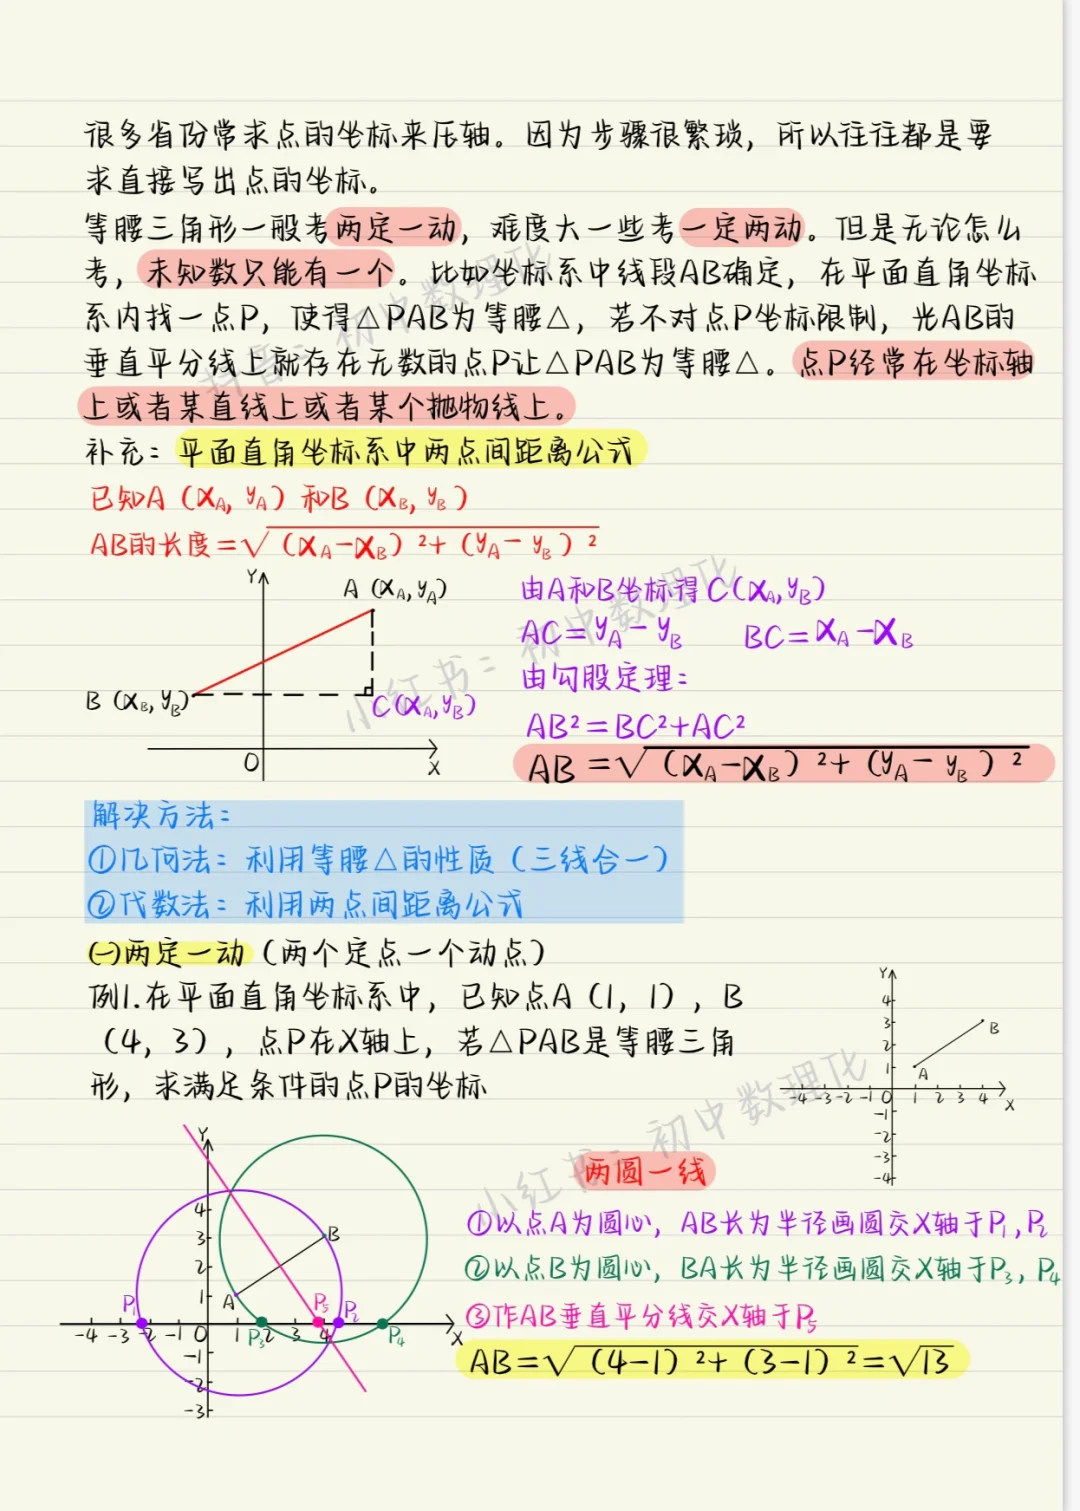 很多省份常求点的坐标来压轴。因为步骤很繁琐，所以往往都是要
求直接写出点的坐标。
等腰三角形一般考两定一动，难度大一些考一定两动。但是无论怎么
考，未知数只能有一个。比如坐标系中线段AB确定，在平面直角坐标
系内找一点P，使得△PAB为等腰△，若不对点P坐标限制，光AB的
垂直平分线上就存在无数的点P让△PAB为等腰△。点P经常在坐标轴
上或者某直线上或者某个抛物线上。
补充：平面直角坐标系中两点间距离公式
已知A（X_A, y_A）和B（X_B, y_B）
AB的长度=√(X_A-X_B)²+(y_A-y_B)²
Y
A (X_A, y_A)
B (X_B, y_B)
C(X_A, y_B)
O
X
由A和B坐标得C(X_A, y_B)
AC=y_A-y_B BC=X_A-X_B
由勾股定理：
AB²=BC²+AC²
AB=√(X_A-X_B)²+(y_A-y_B)²
解决方法：
①几何法：利用等腰△的性质（三线合一）
②代数法：利用两点间距离公式
㈠两定一动（两个定点一个动点）
例1.在平面直角坐标系中，已知点A（1，1），B
（4，3），点P在X轴上，若△PAB是等腰三角
形，求满足条件的点P的坐标
Y
4
3
2
1
B
A
-4 -3 -2 -1 O 1 2 3 4 X
-1
-2
-3
-4
Y
4
3
2
1
B
A
P₁ P₅ P₂
-4 -3 -2 -1 O 1 2 3 4 X
P₃ P₄
-1
-2
-3
两圆一线
①以点A为圆心，AB长为半径画圆交X轴于P₁, P₂
②以点B为圆心，BA长为半径画圆交X轴于P₃, P₄
③作AB垂直平分线交X轴于P₅
AB=√(4-1)²+(3-1)²=√13
抖音：初中数理化
小红书：初中数理化
小红书：初中数理化